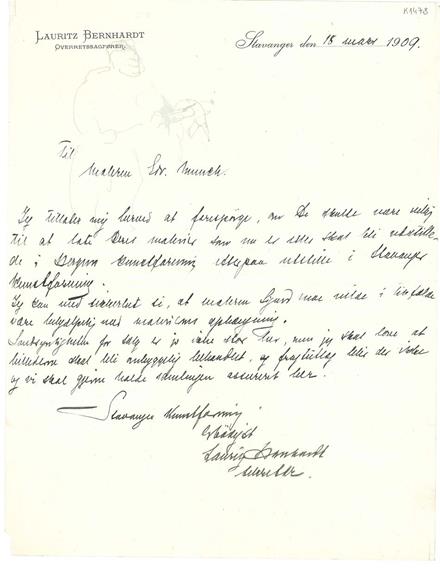 K1473
LAURITZ BERNHARDT
OVERRETSSAGFØRER.
Stavanger den 18 mars 1909.
Til
Maleren Edv. Munch.
Jeg tillader mig herved at forespørge, om De skulde være villig
til at lade Deres malerier som nu er eller skal bli udstille-
de i Bergens Kunstforening utstille i Stavanger
Kunstforening.
Jeg kan med sikkerhet si, at maleren
være behjælpelig med maleriernes ophængning.
Sandsynligheten for salg er jo ikke stor her, men jeg skal love at
billederne skal bli omhyggelig behandlet, og
og vi skal gjerne holde samlingen assurert her.
Stavanger Kunstforening
Ærbødigst
Lauritz Bernhardt